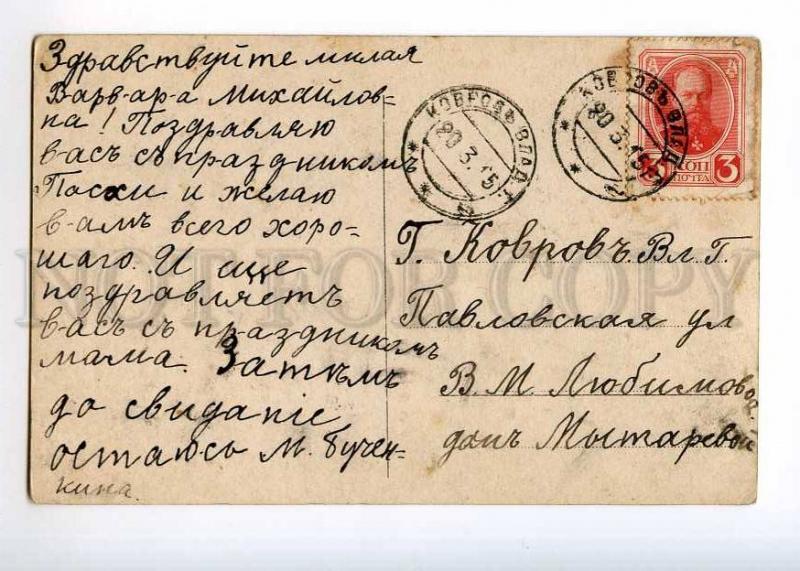 Здравствуйте милая
Варв-ар-а Михайлов=
на! Поздравляю
в-асъ съ праздникомъ
Пасхи и желаю
в-амъ всего хоро-
шаго. И еще
поздравляетъ
в-асъ съ праздникомъ
мама. Затѣмъ
до свиданіе
остаюсь М. Бучен-
кина.
КОВРОВЪ ВЛАД. Г.
30.3.15
КОВРОВЪ ВЛАД.
30.3.15
3 КОП 3
ПОЧТА
Г. Ковровъ Вл Г.
Павловская ул
В М Любимовой
домъ Мытаревой
NOT FOR COPY